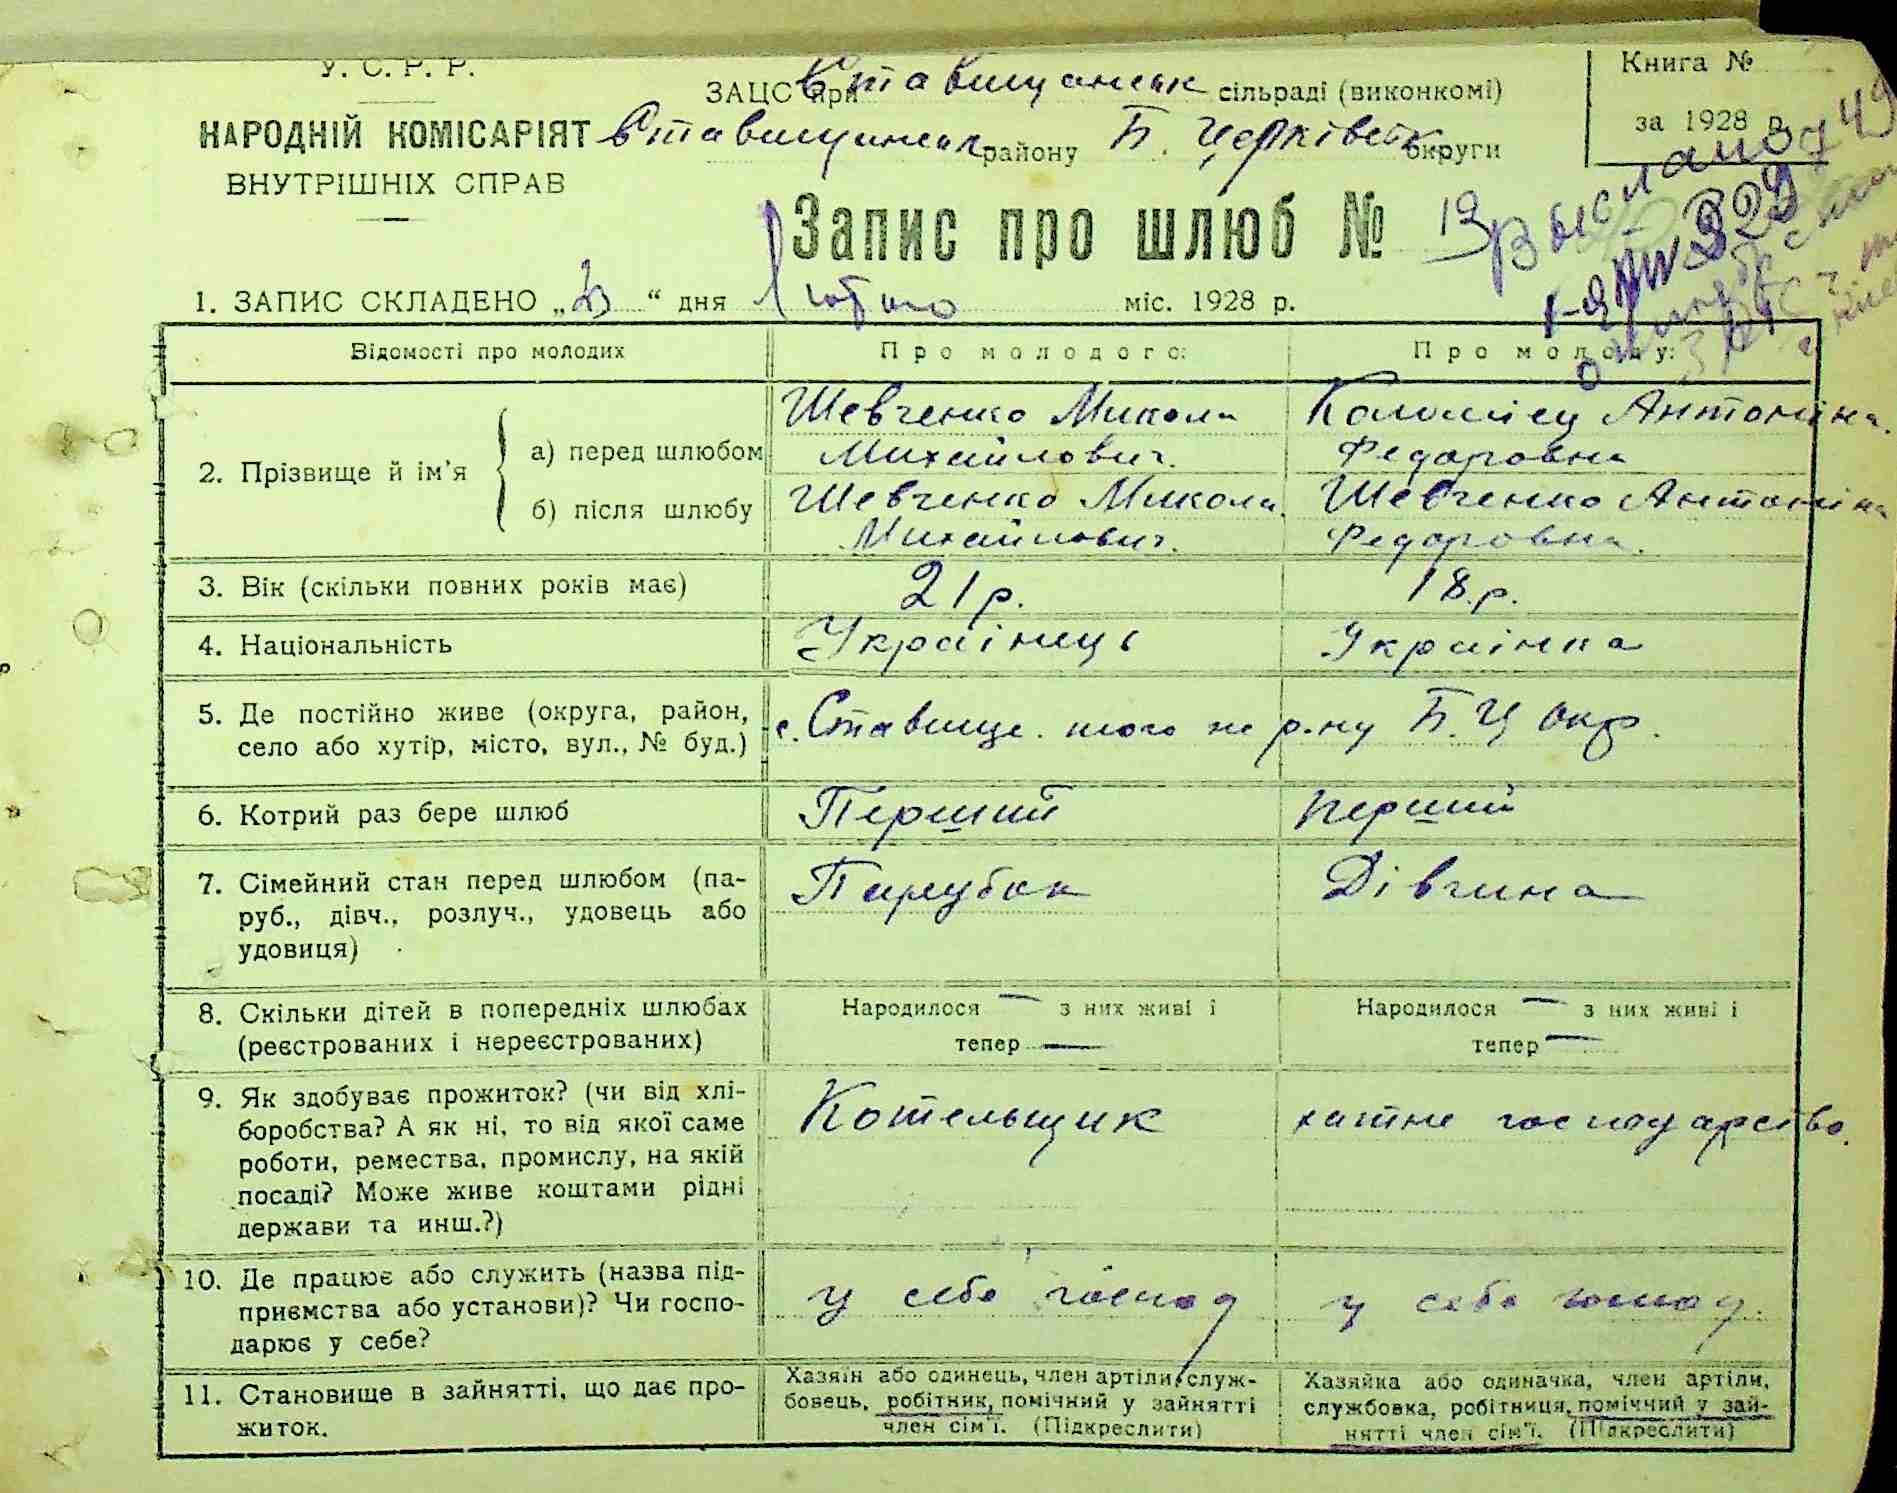 У. С. Р. Р.
НАРОДНІЙ КОМІСАРІЯТ
ВНУТРІШНІХ СПРАВ
ЗАЦС при Ставищанськ сільраді (виконкомі)
Ставищанськ району Б. Церківськ округи
Книга №
за 1928 р.
Запис про шлюб № 19
Выслано
1. ЗАПИС СКЛАДЕНО „ “ дня Лютого міс. 1928 р.
Відомості про молодих Про молодого: Про молоду:
2. Прізвище й ім’я
а) перед шлюбом
Шевченко Микола
Михайлович.
Коломієц Антоніна
Федоровна
б) після шлюбу
Шевченко Микола
Михайлович.
Шевченко Антоніна
Федоровна.
3. Вік (скільки повних років має) 21 р. 18.р.
4. Національність Украінець Украінка
5. Де постійно живе (округа, район,
село або хутір, місто, вул., № буд.)
с. Ставище. того ж р-ну Б.Ц окр.
6. Котрий раз бере шлюб Перший перший
7. Сімейний стан перед шлюбом (па-
руб., дівч., розлуч., удовець або
удовиця)
Парубок Дівчина
8. Скільки дітей в попередніх шлюбах
(реєстрованих і нереєстрованих)
Народилося — з них живі і
тепер —
Народилося — з них живі і
тепер —
9. Як здобуває прожиток? (чи від хлі-
боробства? А як ні, то від якої саме
роботи, ремества, промислу, на якій
посаді? Може живе коштами рідні
держави та инш.?)
Котельщик хатне господарство.
10. Де працює або служить (назва під-
приємства або установи)? Чи госпо-
дарює у себе?
у себе господ у себе господ.
11. Становище в зайнятті, що дає про-
житок.
Хазяїн або одинець, член артіли, служ-
бовець, робітник, помічний у зайнятті
член сім’ї. (Підкреслити)
Хазяйка або одиначка, член артіли,
службовка, робітниця, помічний у зай-
нятті член сім’ї. (Підкреслити)